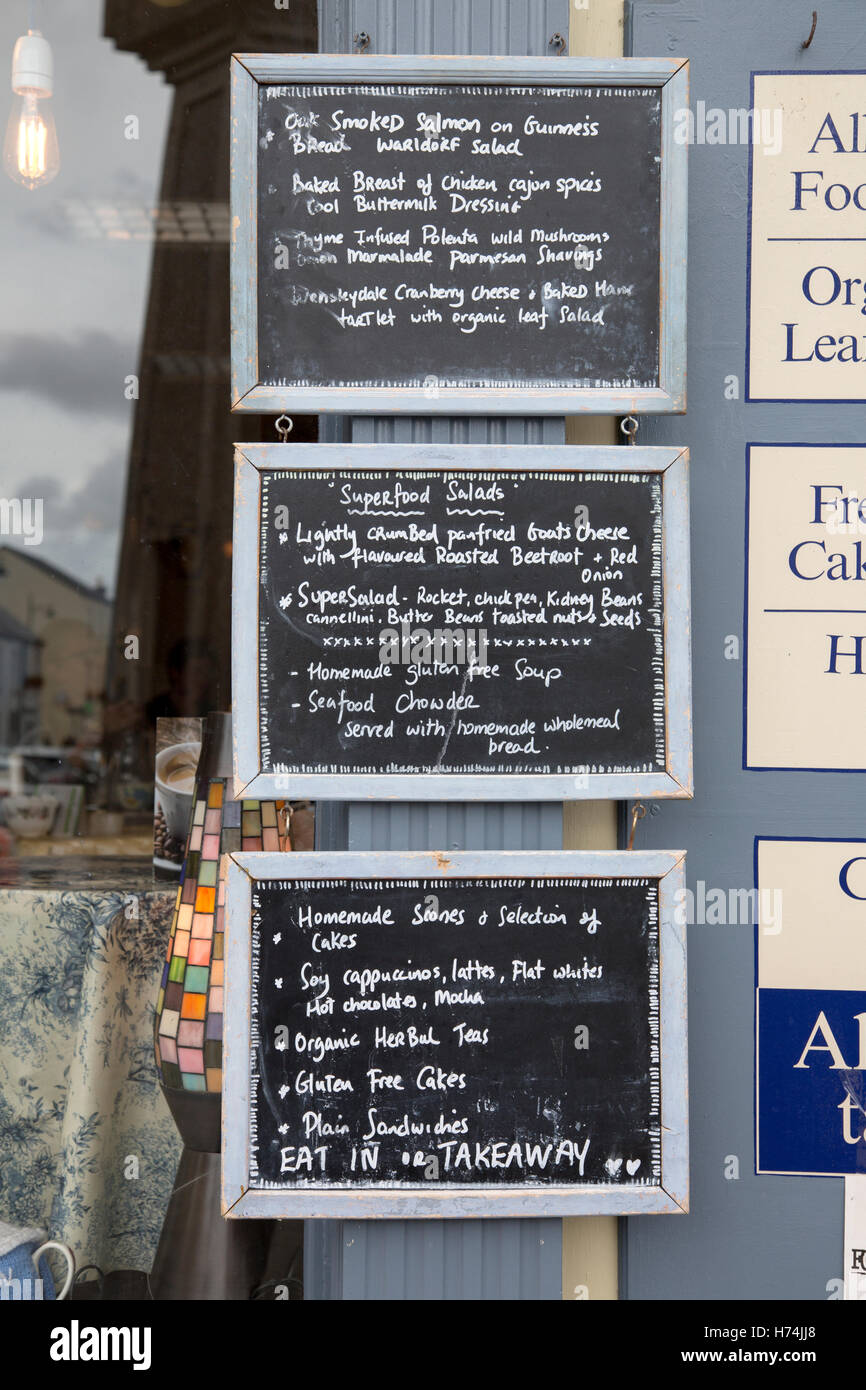 Oak Smoked Salmon on Guinness
Bread Warldorf Salad
Baked Breast of Chicken cajon spices
Cool Buttermilk Dressing
Thyme Infused Polenta wild Mushrooms
Onion Marmalade Parmesan Shavings
Wensleydale Cranberry Cheese & Baked Ham
tartlet with organic leaf Salad
"Superfood Salads"
* Lightly crumbed panfried Goats Cheese
with flavoured Roasted Beetroot + Red
Onion
* SuperSalad - Rocket, chickpea, Kidney Beans
cannellini, Butter Beans toasted nuts & Seeds
xxxxxxxxxxxxxxxxxxx
- Homemade gluten free Soup
- Seafood Chowder
served with homemade wholemeal
bread.
* Homemade Scones & Selection of
Cakes
* Soy cappuccinos, lattes, Flat whites
Hot chocolates, Mocha
* Organic Herbul Teas
* Gluten Free Cakes
* Plain Sandwiches
EAT IN OR TAKEAWAY
All
Foo
Org
Leaf
Fre
Cak
H
C
Al
t
alamy
Image ID: H74JJ8
www.alamy.com